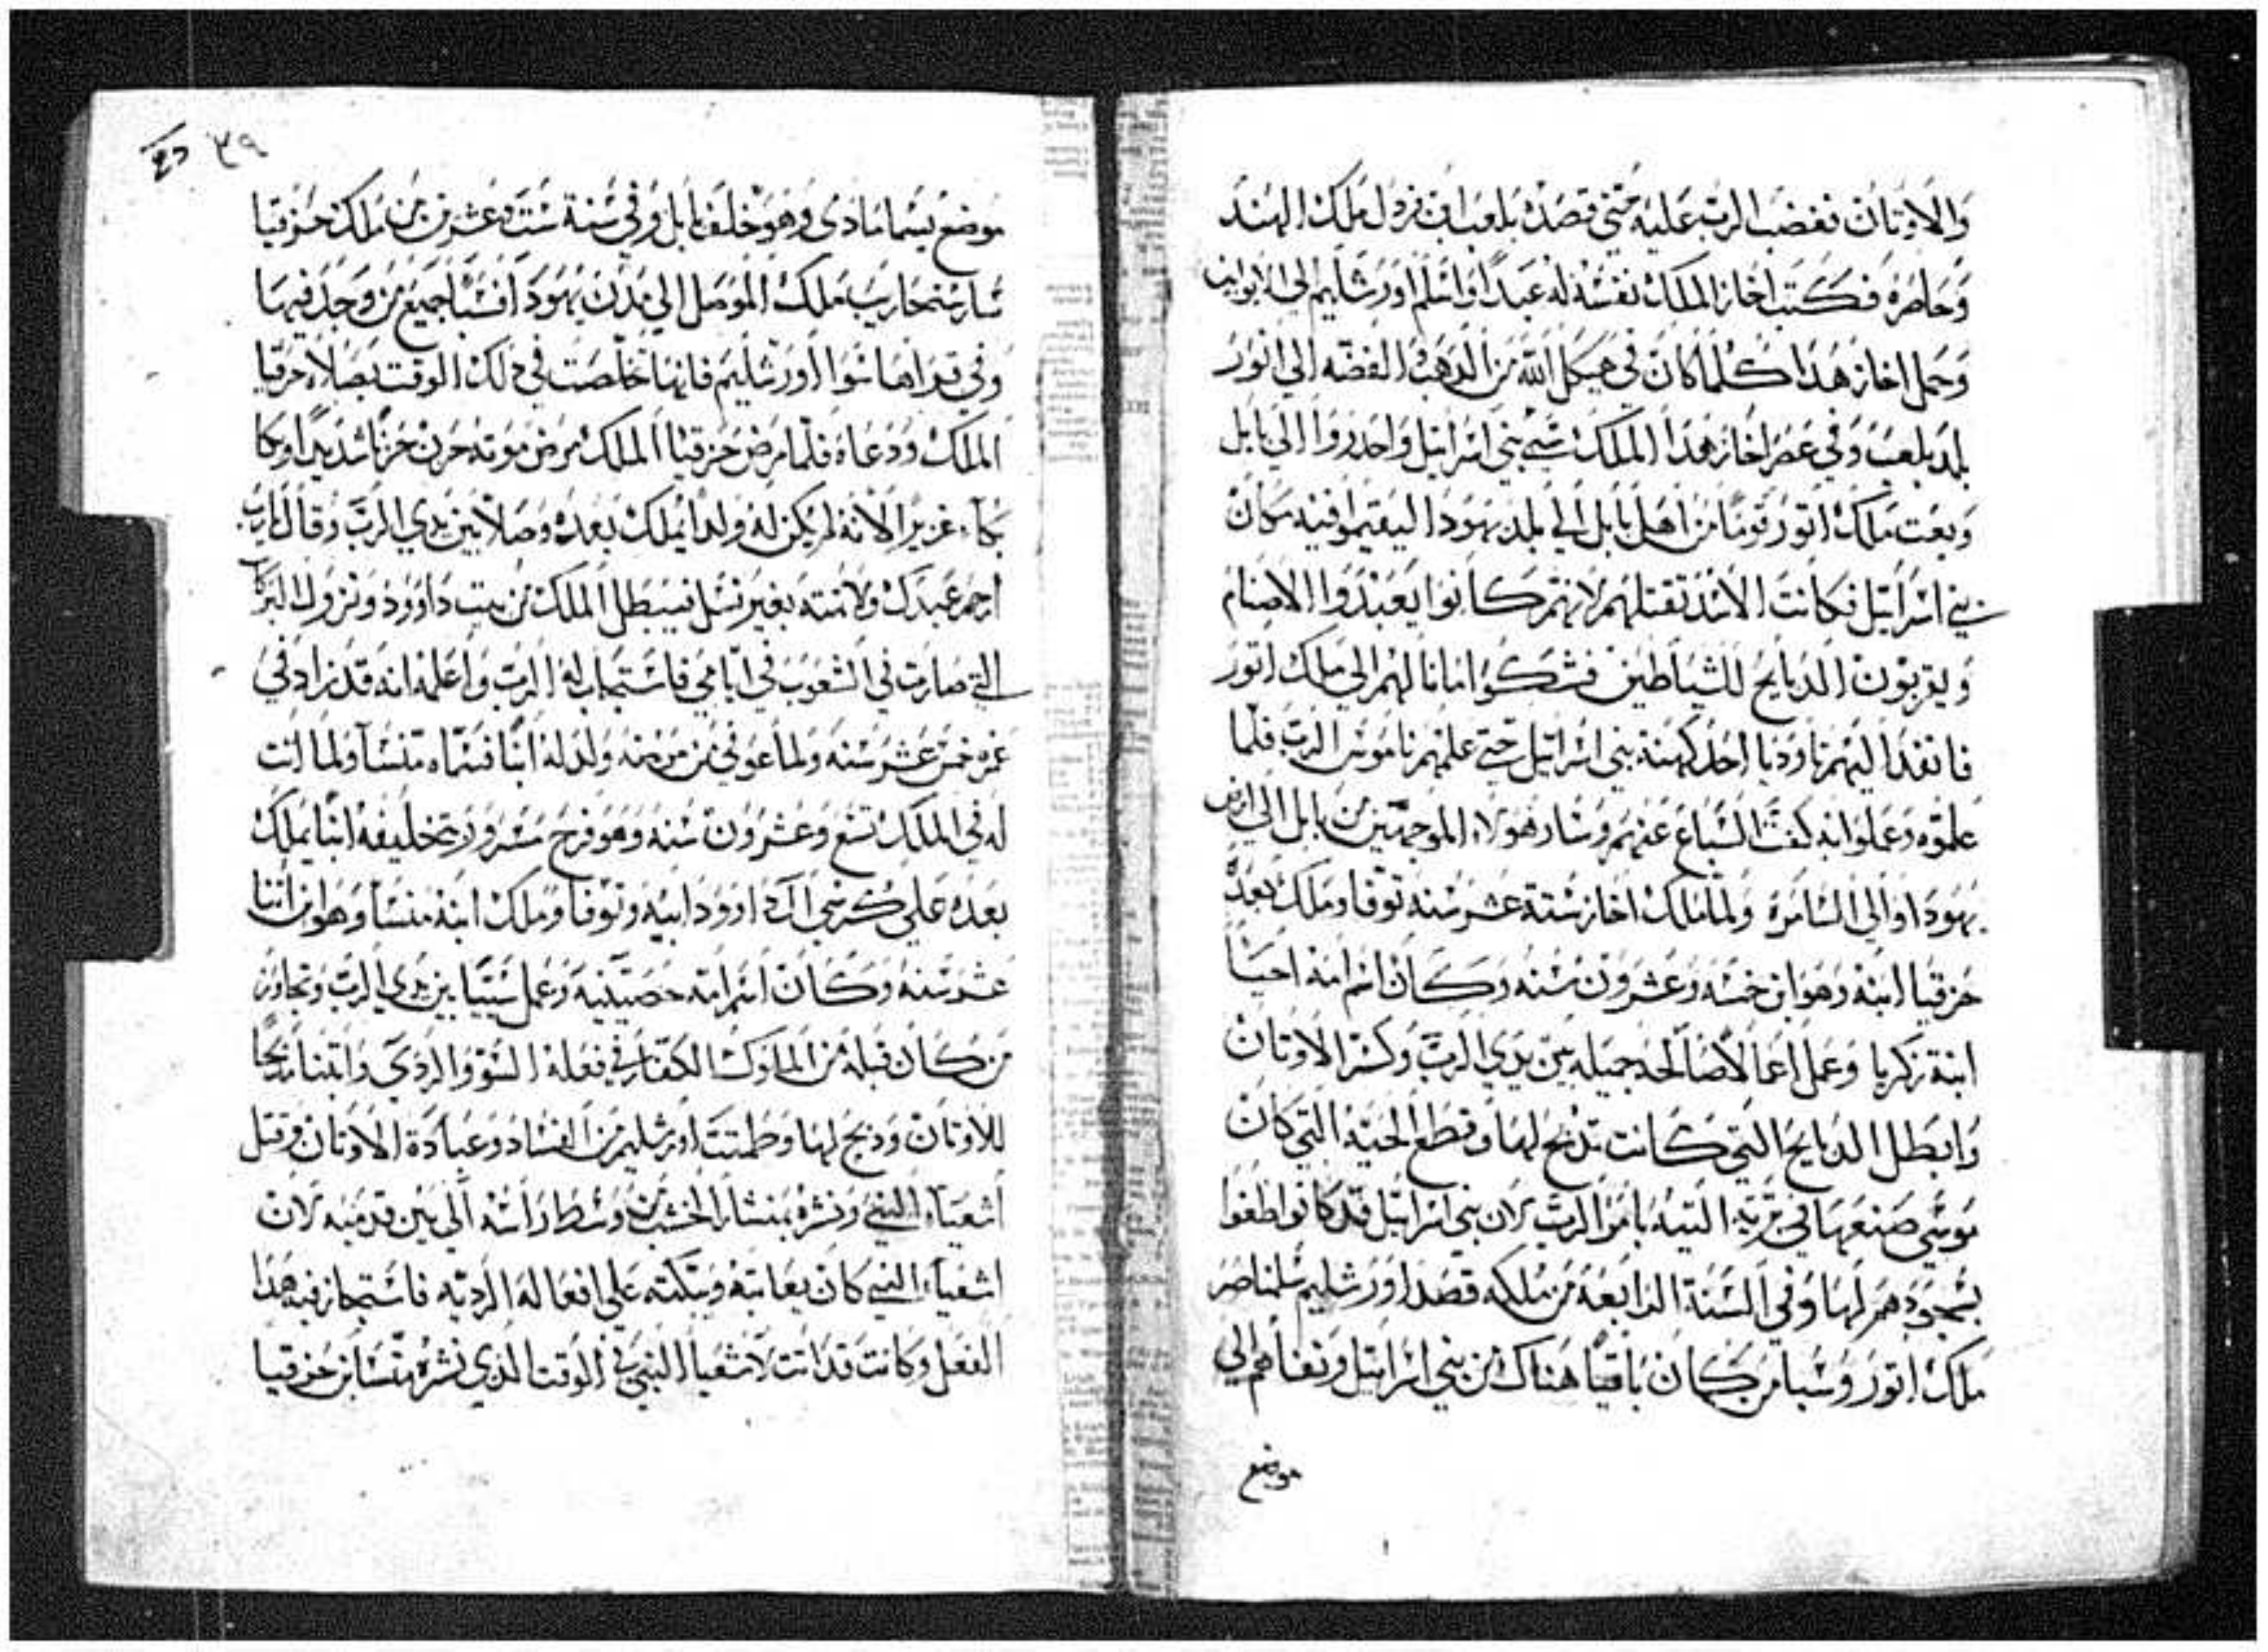 والاوتان فغضب الرب عليه حتي قصده بلعب ابن فردل ملك الهند
وحاصره فكتب اخاز الملك نفسه له عبدا واسلم اورشليم الي ابوابها
وحمل اخاز هدا كلما كان في هيكل الله من الدهب والفضه الي اتور
بلد بلعب وفي عصر اخاز هدا الملك سبي بني اسراييل واحدروا الي بابل
وبعت ملك اتور قوما من اهل بابل الي بلد يهودا ليقيموا فيه مكان
بني اسراييل فكانت الاسد تقتلهم لانهم كانوا يعبدوا الاصنام
ويقربون الدبايح للشياطين فشكوا امانا لهم الي ملك اتور
فانفدا اليهم اوديا احد كهنة بني اسراييل حتي علمهم ناموس الرب فلما
علموه وعملوا به كفت السباع عنهم وسار هولاء الموجهين من بابل الي ارض
يهودا والي السامرة ولما ملك اخاز ستة عشر سنه توفا وملك بعده
حزقيا ابنه وهو ابن خمسه وعشرون سنه وكان اسم امه احيسا
ابنة زكريا وعمل اعمالا صالحه جميله بين يدي الرب وكسر الاوتان
وابطل الدبايح التي كانت تدبح لها وقطع الحيه التي كان
موسي صنعها في برية التيه بامر الرب لان بني اسراييل قد كانوا طغوا
بسجودهم لها وفي السنة الرابعه من ملكه قصد اورشليم سلمناصر
ملك اتور وسبا من كان باقيا هناك من بني اسراييل ونفاهم الي
موضع
٣٩
موضع يسما مادي وهو خلف بابل وفي سنة ست وعشرين من ملك حزقيا
سار سنحاريب ملك الموصل الي مدن يهودا فسبا جميع من وجد فيها
وفي قراها سوا اورشليم فانها تخلصت في دلك الوقت بصلاة حزقيا
الملك ودعاه فلما مرض حزقيا الملك مرض موته حزن حزنا شديدا وبكا
بكاء غزيرا لانه لم يكن له ولدا يملك بعده وصلا بين يدي الرب وقال يارب
ارحم عبدك ولا تميته بغير نسل فيبطل الملك من بيت داوود وتزول البركات
التي صارت في الشعوب في ايامي فاستجاب له الرب واعلمه انه قد زاد في
عمره خمس عشر سنه ولما عوفي من مرضه ولد له ابنا فسماه منسا ولما اتت
له في الملك تسع وعشرون سنه وهو فرح مسرور بتخليفه ابنا يملك
بعده علي كرسي ال داوود ابيه وتوفا وملك ابنه منسا وهو ابن اتنا
عشر سنه وكان اسم امه حصيبيه وعمل سييا بين يدي الرب وتجاوز
من كان قبله من الملوك الكفار في فعله السوء والردي وابتنا مدبحا
للاوتان ودبح لها وطميت اورشليم من الفساد وعبادة الاوتان وقتل
اشعياء النبي ونشره بمنشار الخشب من وسط راسه الي بين قدميه لان
اشعياء النبي كان يعاتبه ويبكته علي افعاله الرديه فاستجاز فيه هدا
الفعل وكانت قد اتت لاشعيا النبي في الوقت الدي نشره منسا بن حزقيا